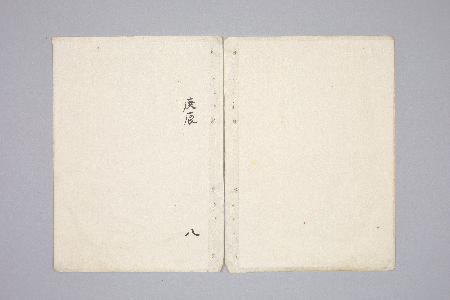 庚辰
八